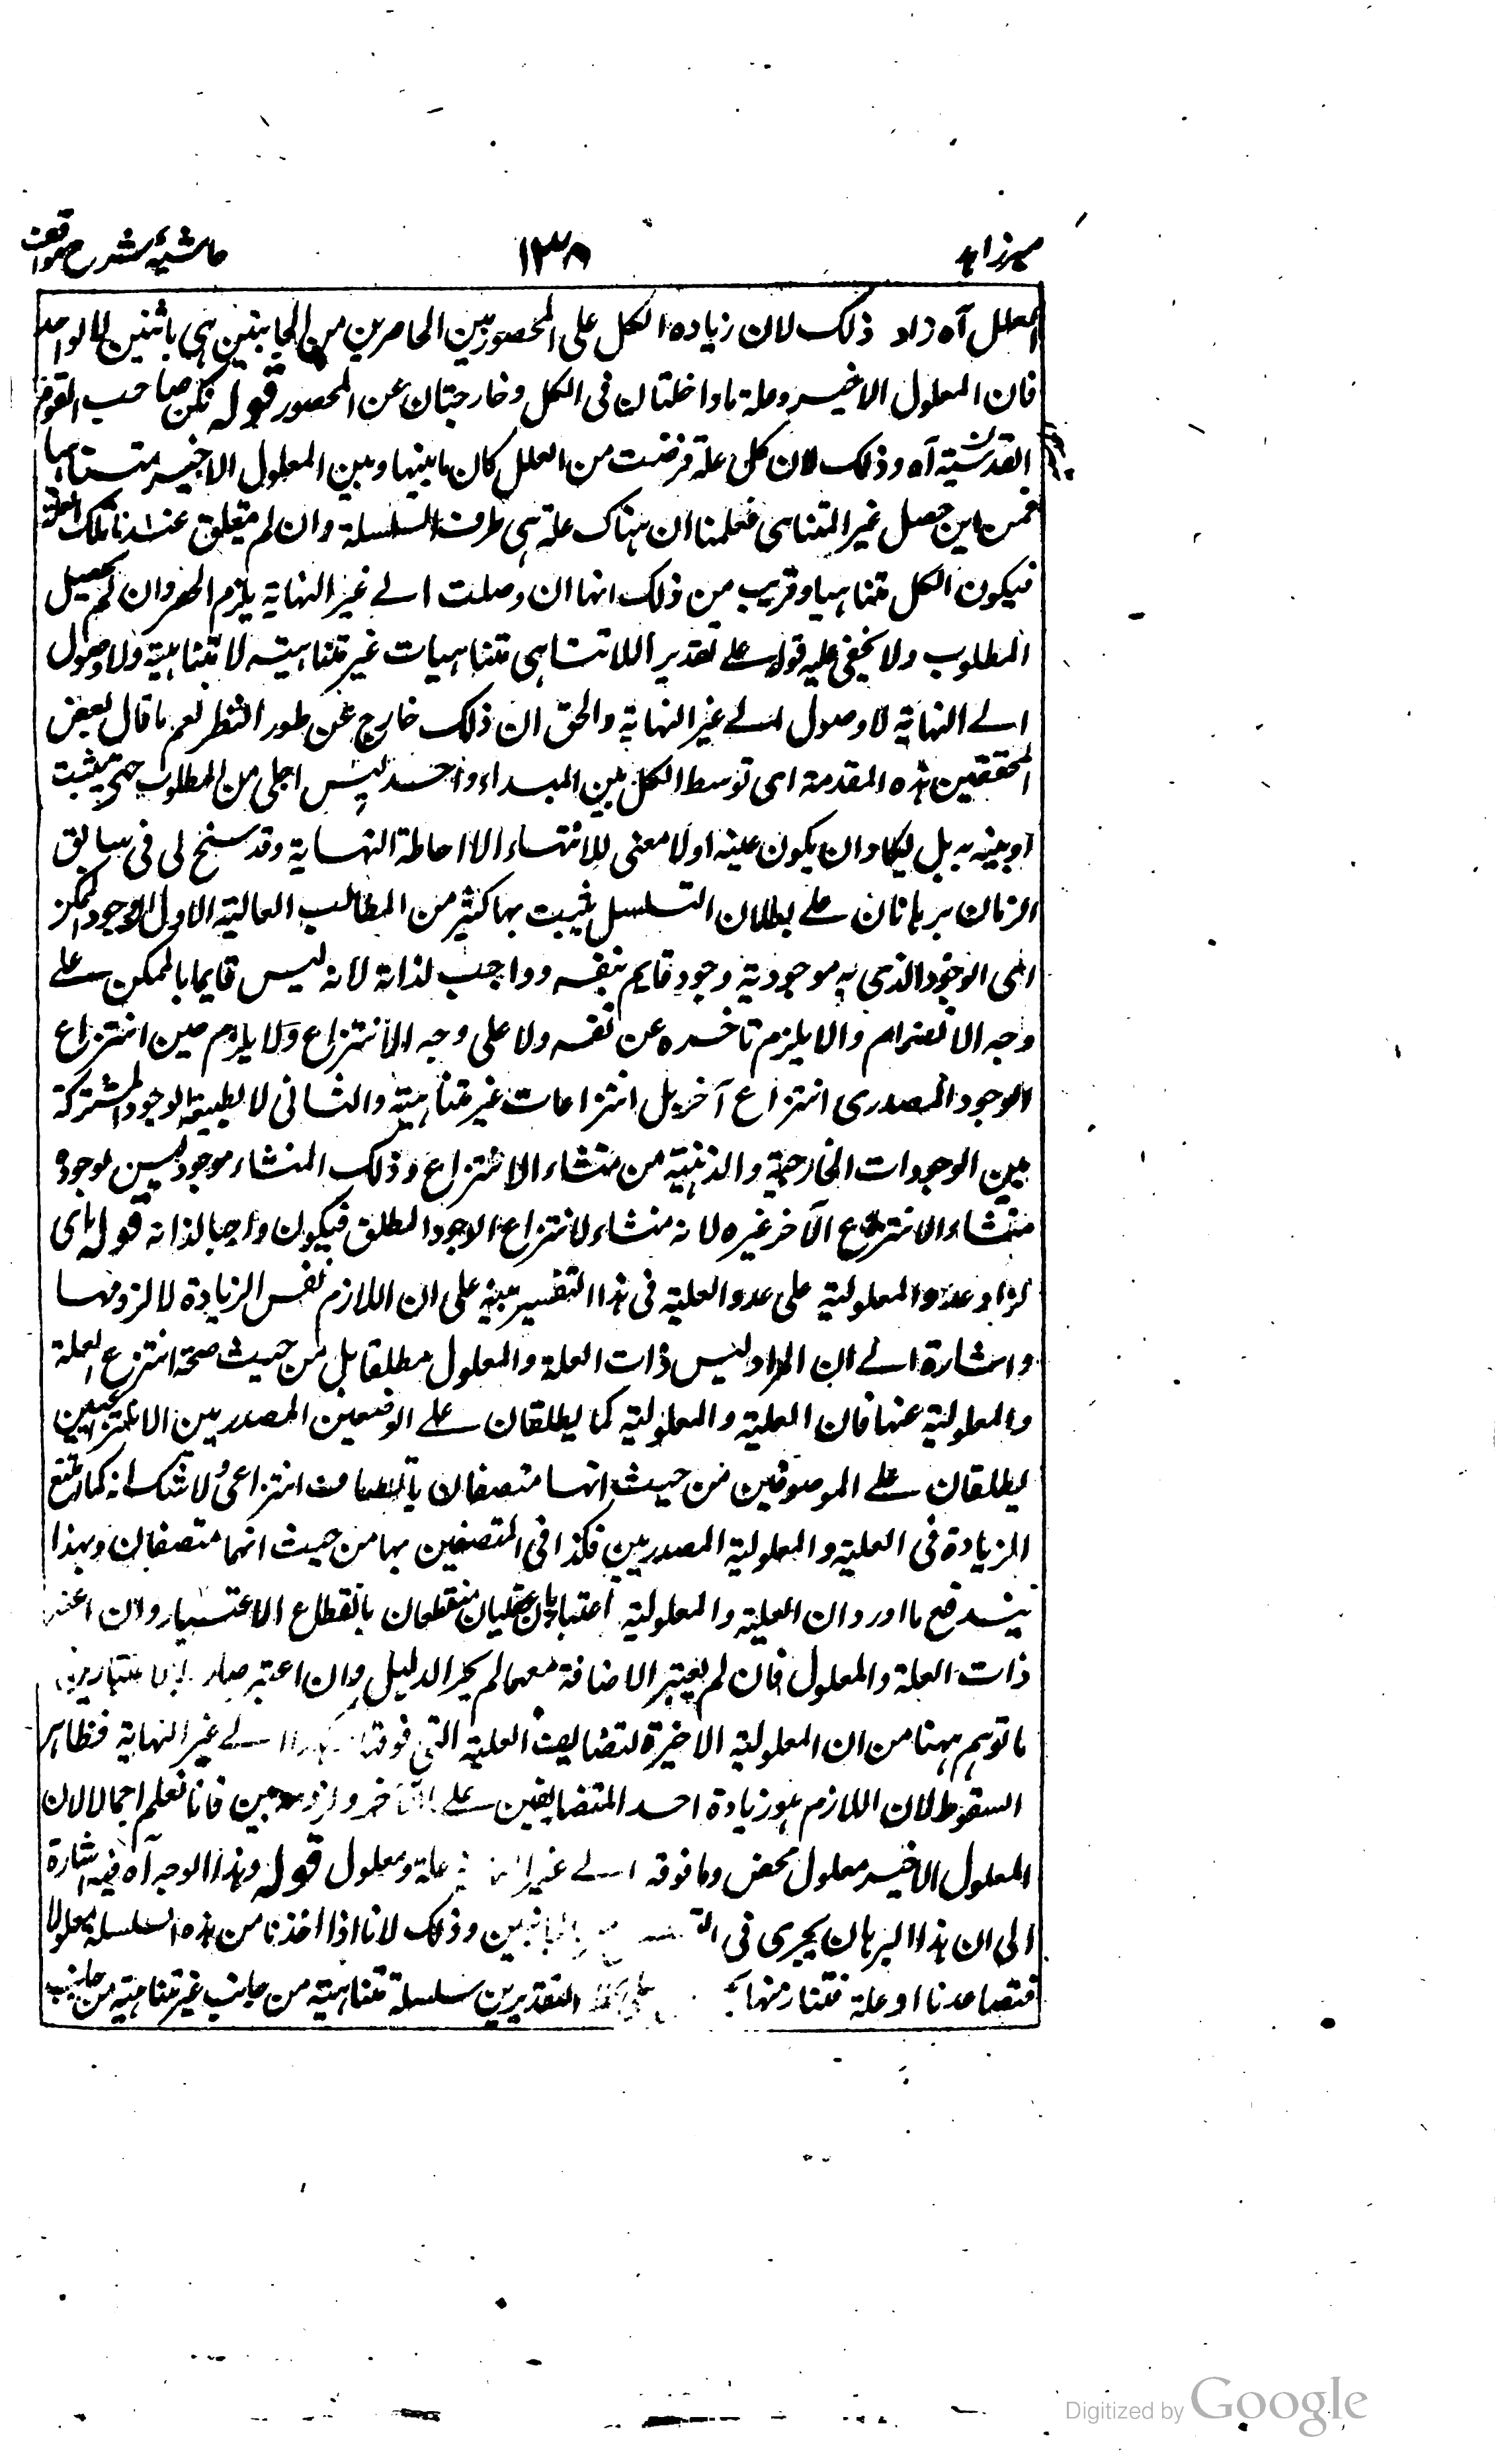 میرزاہد
۱۳۸
حاشیۂ شرح مواقف
العلل آہ زاد ذلک لان زیادہ الکل علی المحصور بین الحاصرین من الجانبین ہی باثنین لا بالواحد
فان المعلول الاخیر وعلة ما داخلتان فی الکل وخارجتان عن المحصور قولہ لکن صاحب القوة
القدسیة آہ وذلک لان کل علة فرضت من العلل کان ما بینہا وبین المعلول الاخیر متناہیا
فمن این حصل غیر المتناہی فعلمنا ان ہناک علة ہی طرف السلسلة وان لم یتعلق عندنا تلک العلة
فیکون الکل متناہیا وقریب من ذلک انہا ان وصلت الے غیر النہایة یلزم الحصر وان لم یصل
المطلوب ولا یخفی علیہ قولہ علے تقدیر اللاتناہی متناہیات غیر متناہیتہ لا متناہیة ولا وصول
الے النہایة لا وصول الے غیر النہایة والحق ان ذلک خارج عن طور النظر نعم ما قال بعض
المحققین ہذہ المقدمة ای توسط الکل بین المبداء واحد لیس اجلی من المطلوب حتی یثبت
او یبینہ بہ بل یکاد ان یکون عینہ اولا معنی للانتہاء الا احاطة النہایة وقد سنح لی فی سابق
الزمان برہانان علے بطلان التسلسل یثبت بہا کثیر من المطالب العالیة الاول الوجود الممکن
ای الوجود الذی بہ موجودیة وجود قایم بنفسہ وواجب لذاتہ لانہ لیس قایما بالممکن علے
وجہ الانضمام والا یلزم تاخرہ عن نفسہ ولا علی وجہ الانتزاع ولا یلزم حین انتزاع
الوجود المصدری انتزاع آخر بل انتزاعات غیر متناہیة والثانی لا لطبیعة الوجود المشترکة
بین الوجودات الخارجیة والذہنیة من منشاء الانتزاع وذلک المنشاء موجود لیس لوجودہ
منشاء الانتزاع الآخر غیرہ لانہ منشاء لانتزاع الوجود المطلق فیکون واجبا لذاتہ قولہ ای
لزاد عدد المعلولیة علی عدد العلیة فی ہذا التفسیر تنبیہ علی ان اللازم نفس الزیادة لا لزومہا
واشارة الے ان المراد لیس ذات العلة والمعلول مطلقا بل من حیث صحة انتزاع العلة
والمعلولیة عنہا فان العلیة والمعلولیة کما یطلقان علے الوصفین المصدریین الانتزاعیین
یطلقان علے الموصوفین من حیث انہا متصفان باتصاف انتزاعی ولا شک انہ کما یمتنع
الزیادة فی العلیة والمعلولیة المصدریین فکذا فی المتصفین بہا من حیث انہما متصفان وبہذا
یندفع ما اورد ان العلیة والمعلولیة اعتباریان عقلیان منقطعان بانقطاع الاعتبار وان اعتبر
ذات العلة والمعلول فان لم یعتبر الاضافة معہما لم یجر الدلیل وان اعتبر صار
ما توہم ہہنا من ان المعلولیة الاخیرة لتضایف العلیة التی فوقہا الے غیر النہایة فظاہر
السقوط لان اللازم ہو زیادة احد المتضایفین علے الآخر فانا نعلم اجمالا لان
المعلول الاخیر معلول محض وما فوقہ الے غیر علة ومعلول قولہ وہذا الوجہ آہ فیہ اشارة
الی ان ہذا البرہان یجری فی وذلک لانا اذا اخذنا من ہذہ السلسلة معلولا
فتصاعدنا او علة فتنازلنا التقدیرین سلسلة متناہیة من جانب غیر متناہیة من جانب
Digitized by Google